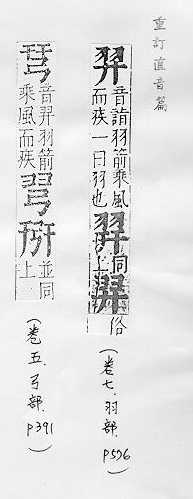 重訂直音篇
羿
音詣羽箭乘風
而疾一曰羽也
同
上
俗
(卷七、羽部、p576)
音羿羽箭
乘風而疾
並同
上
(卷五、弓部、p391)